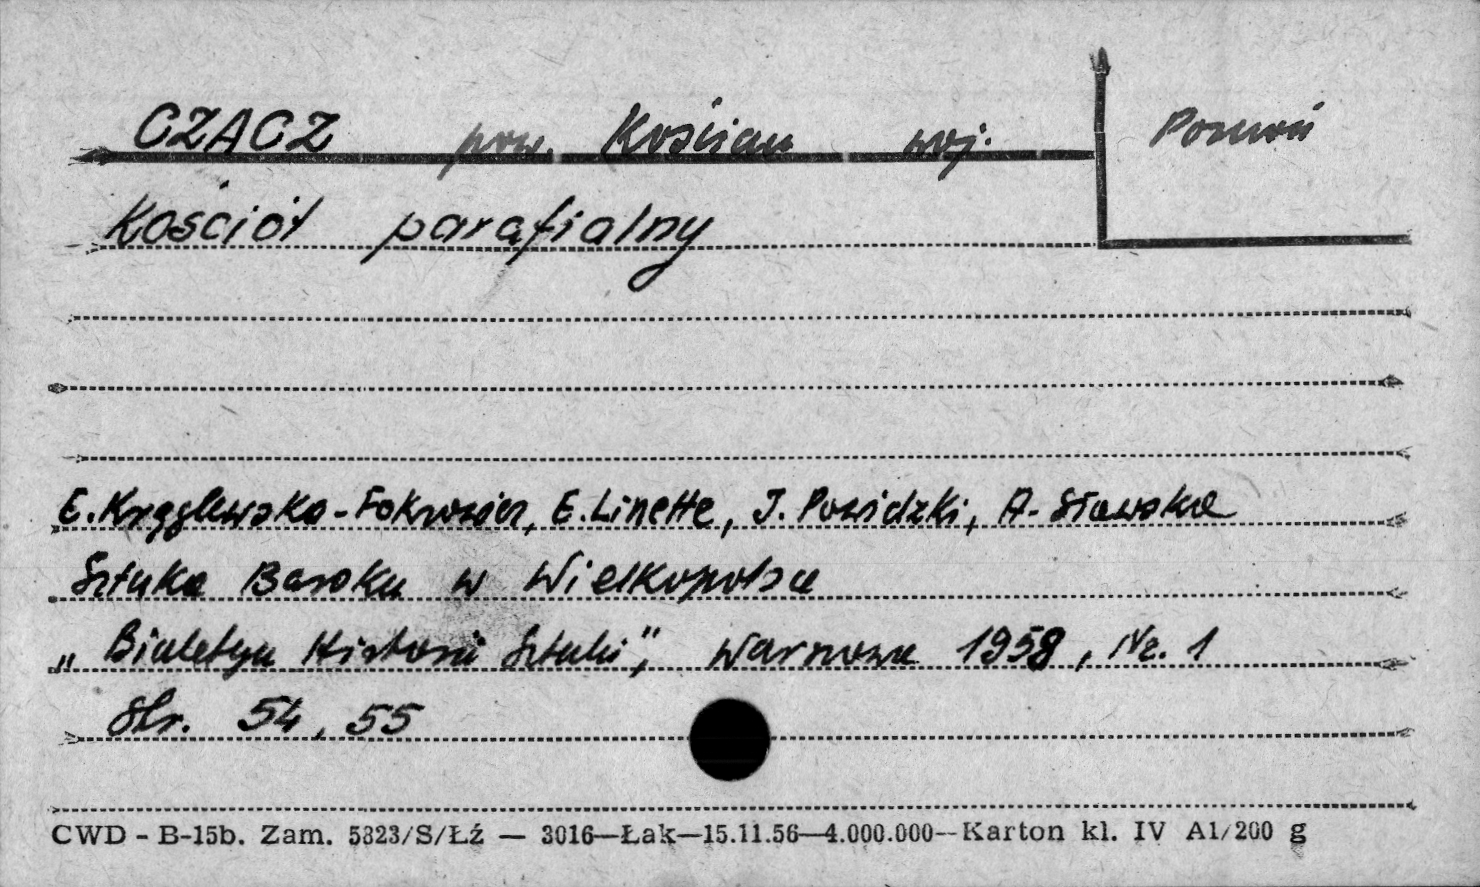 CZACZ pow. Kościan woj. Poznań
Kościół parafialny
E. Kręglewska-Fokrowicz, E. Linette, J. Powidzki, A. Sławska
Sztuka Baroku w Wielkopolsce
„Biuletyn Historii Sztuki", Warszawa 1958, Nr. 1
Str. 54, 55
CWD - B-15b. Zam. 5323/S/Łź — 3016—Łak—15.11.56—4.000.000--Karton kl. IV A1/200 g